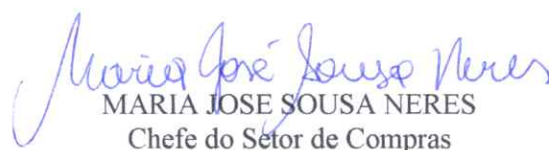 Maria José Sousa Neres
MARIA JOSE SOUSA NERES
Chefe do Setor de Compras